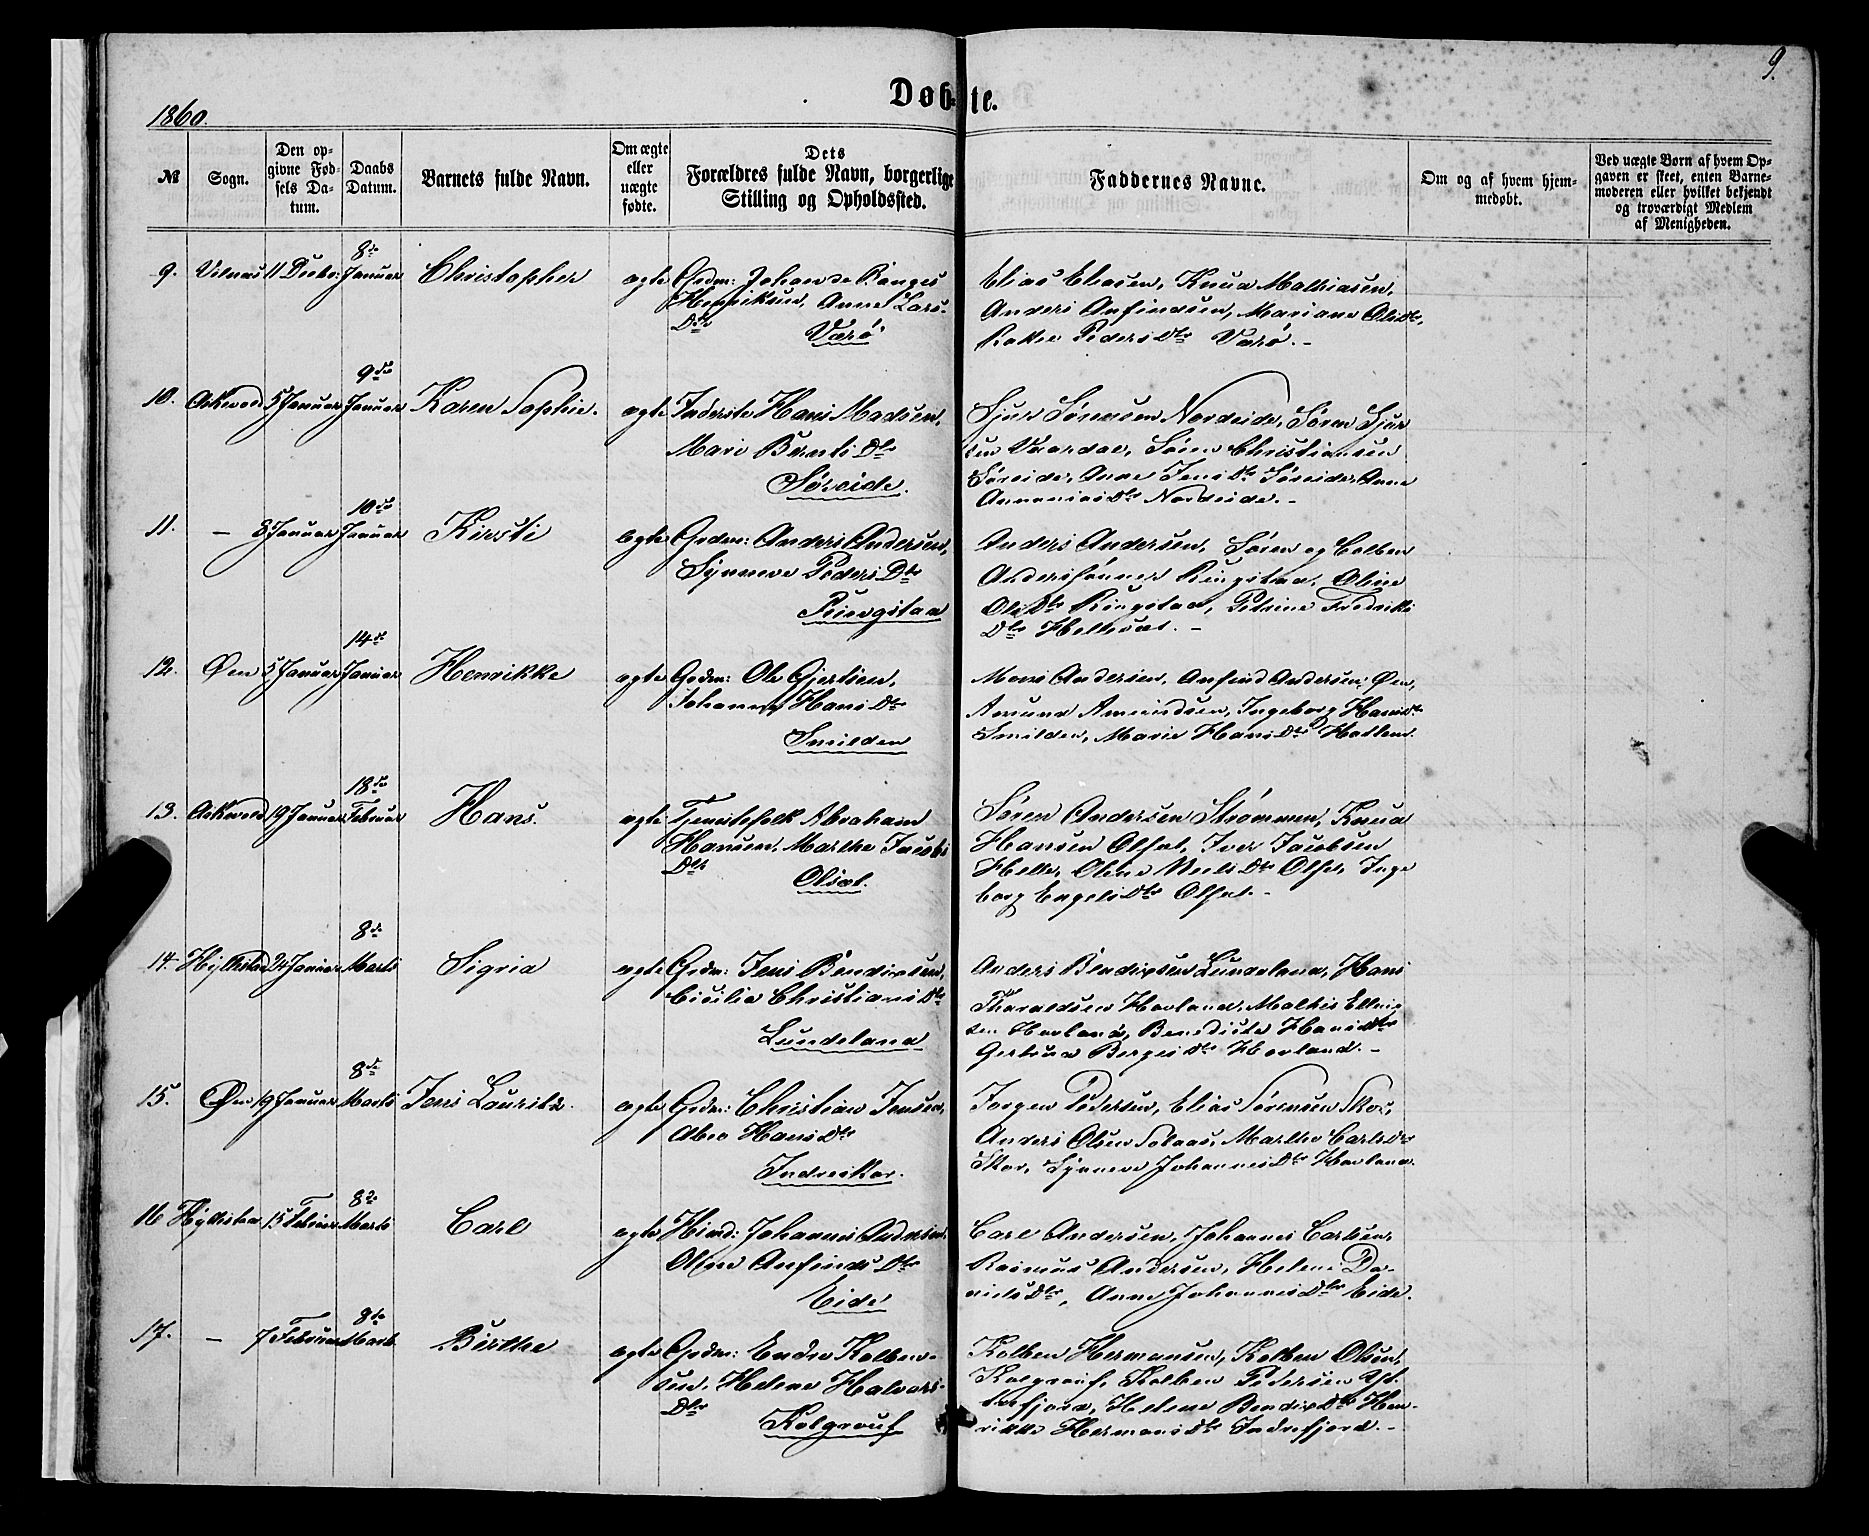 9.
Døbte.
1860.
№
Sogn.
Den op-
givne Fød-
sels Da-
tum.
Daabs
Datum.
Barnets fulde Navn.
Om ægte
eller
uægte
fødte.
Dets
Forældres fulde Navn, borgerlige
Stilling og Opholdssted.
Faddernes Navne.
Om og af hvem hjem-
medøbt.
Ved uægte Børn af hvem Op-
gaven er skeet, enten Barne-
moderen eller hvilket bekjendt
og troværdigt Medlem
af Menigheden.
8de
9. Vilnæs 11 Decbr: Januar Christopher ægte Grdm: Johan de Ranges
Henriksen, Anne Lars-
Dtr
Værø
Elias Eliasen, Knud Mathiasen,
Anders Anfindsen, Mariane OlsDtr,
PedersDtr Værø. -
9de
10. Askevold 5 Januar Januar Karen Sophie. ægte Inderste Hans Madsen,
Mari BerntsDtr
Søreide.
Sjur Sørensen Nordeide, Søren Sjur
sen Vaardal, Søren Christiansen
Søreide, Anne JensDtr Søreide, Anne
AnnaniasDtr Nordeide. -
10de
11. - 8 Januar Januar Kirsti ægte Grdm: Anders Andersen,
Synneve PedersDtr
Ringstaa
Anders Andersen, Søren og Colben
Anderssønner Ringstaa, Oline
OlsDtr Ringstaa, Petrine Fredriks
Dtr Hellesæt. -
14de
12. Øen 5 Januar Januar Henrikke ægte Grdm: Ole Gjertsen,
Johanna HansDtr
Smilden
Mons Andersen, Anfind Andersen, Øen,
Amund Amundsen, Ingeborg HansDtr
Smilden, Marie HansDtr
18de
13. Askevold 19 Januar Februar Hans. ægte Tjenestefolk Abraham
Hansen, Marthe Jacobs
Dtr
Olset.
Søren Andersen Strømmen, Knud
Hansen Olset, Iver Jacobsen
Helle, Oline NielsDtr Olset, Inge
borg EngelsDtr Olset. -
8de
14. Hyllestad 24 Januar Marts Sigrid ægte Grdm: Jens Bendixsen,
Cicilie ChristiansDtr
Lundeland
Anders Bendixsen Lundeland, Hans
Tharaldsen Hovland, Mathis Elling
sen Hovland, Benedicte HansDtr
Gertrud BørgesDtr Hovland. -
8de
15. Øen 19 Januar Marts Jens Lauritz. ægte Grdm: Christian Jensen,
HansDtr
Indreskor.
Jørgen Pedersen, Elias Sørensen Skor,
Anders Olsen Solaas, Marthe CarlsDtr
Skor, Synneve JohannesDtr Hovland.
8de
16 Hyllestad 15 Februar Marts Carl ægte Johannes Andersen,
Oline AnfindsDtr
Eide
Carl Andersen, Johannes Carlsen,
Rasmus Andersen, Helene Da-
nielsDtr, Anne JohannesDtr Eide.
8de
17. - 7 Februar Marts Birthe ægte Grdm: Endre Kolben-
sen, Helene Halvors-
Dtr
Kolgrouf
Kolben Hermansen, Kolben Olsen,
Kolgrouf, Kolben Pedersen Yt-
trefjord, Helene BendixDtr Hen-
rikke HermansDtr Indrefjord. -